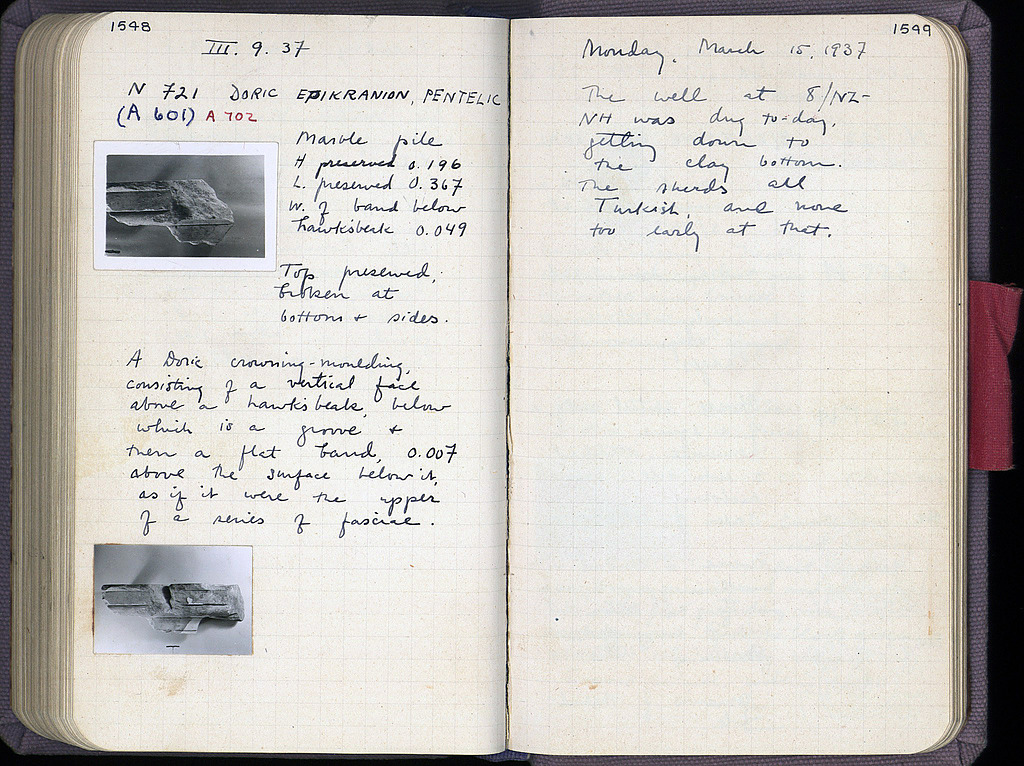 1548
III. 9. 37
N 721 DORIC EPIKRANION, PENTELIC
(A 601) A 702
Marble pile
H preserved 0.196
L. preserved 0.367
W. of band below
hawksbeak 0.049
Top preserved,
broken at
bottom + sides.
A Doric crowning-moulding,
consisting of a vertical face
above a hawksbeak, below
which is a groove +
then a flat band, 0.007
above the surface below it,
as if it were the upper
of a series of fasciae.
1549
Monday, March 15, 1937
The well at 8/NZ-
NH was dug to-day,
getting down to
the clay bottom.
The sherds all
Turkish, and none
too early at that.